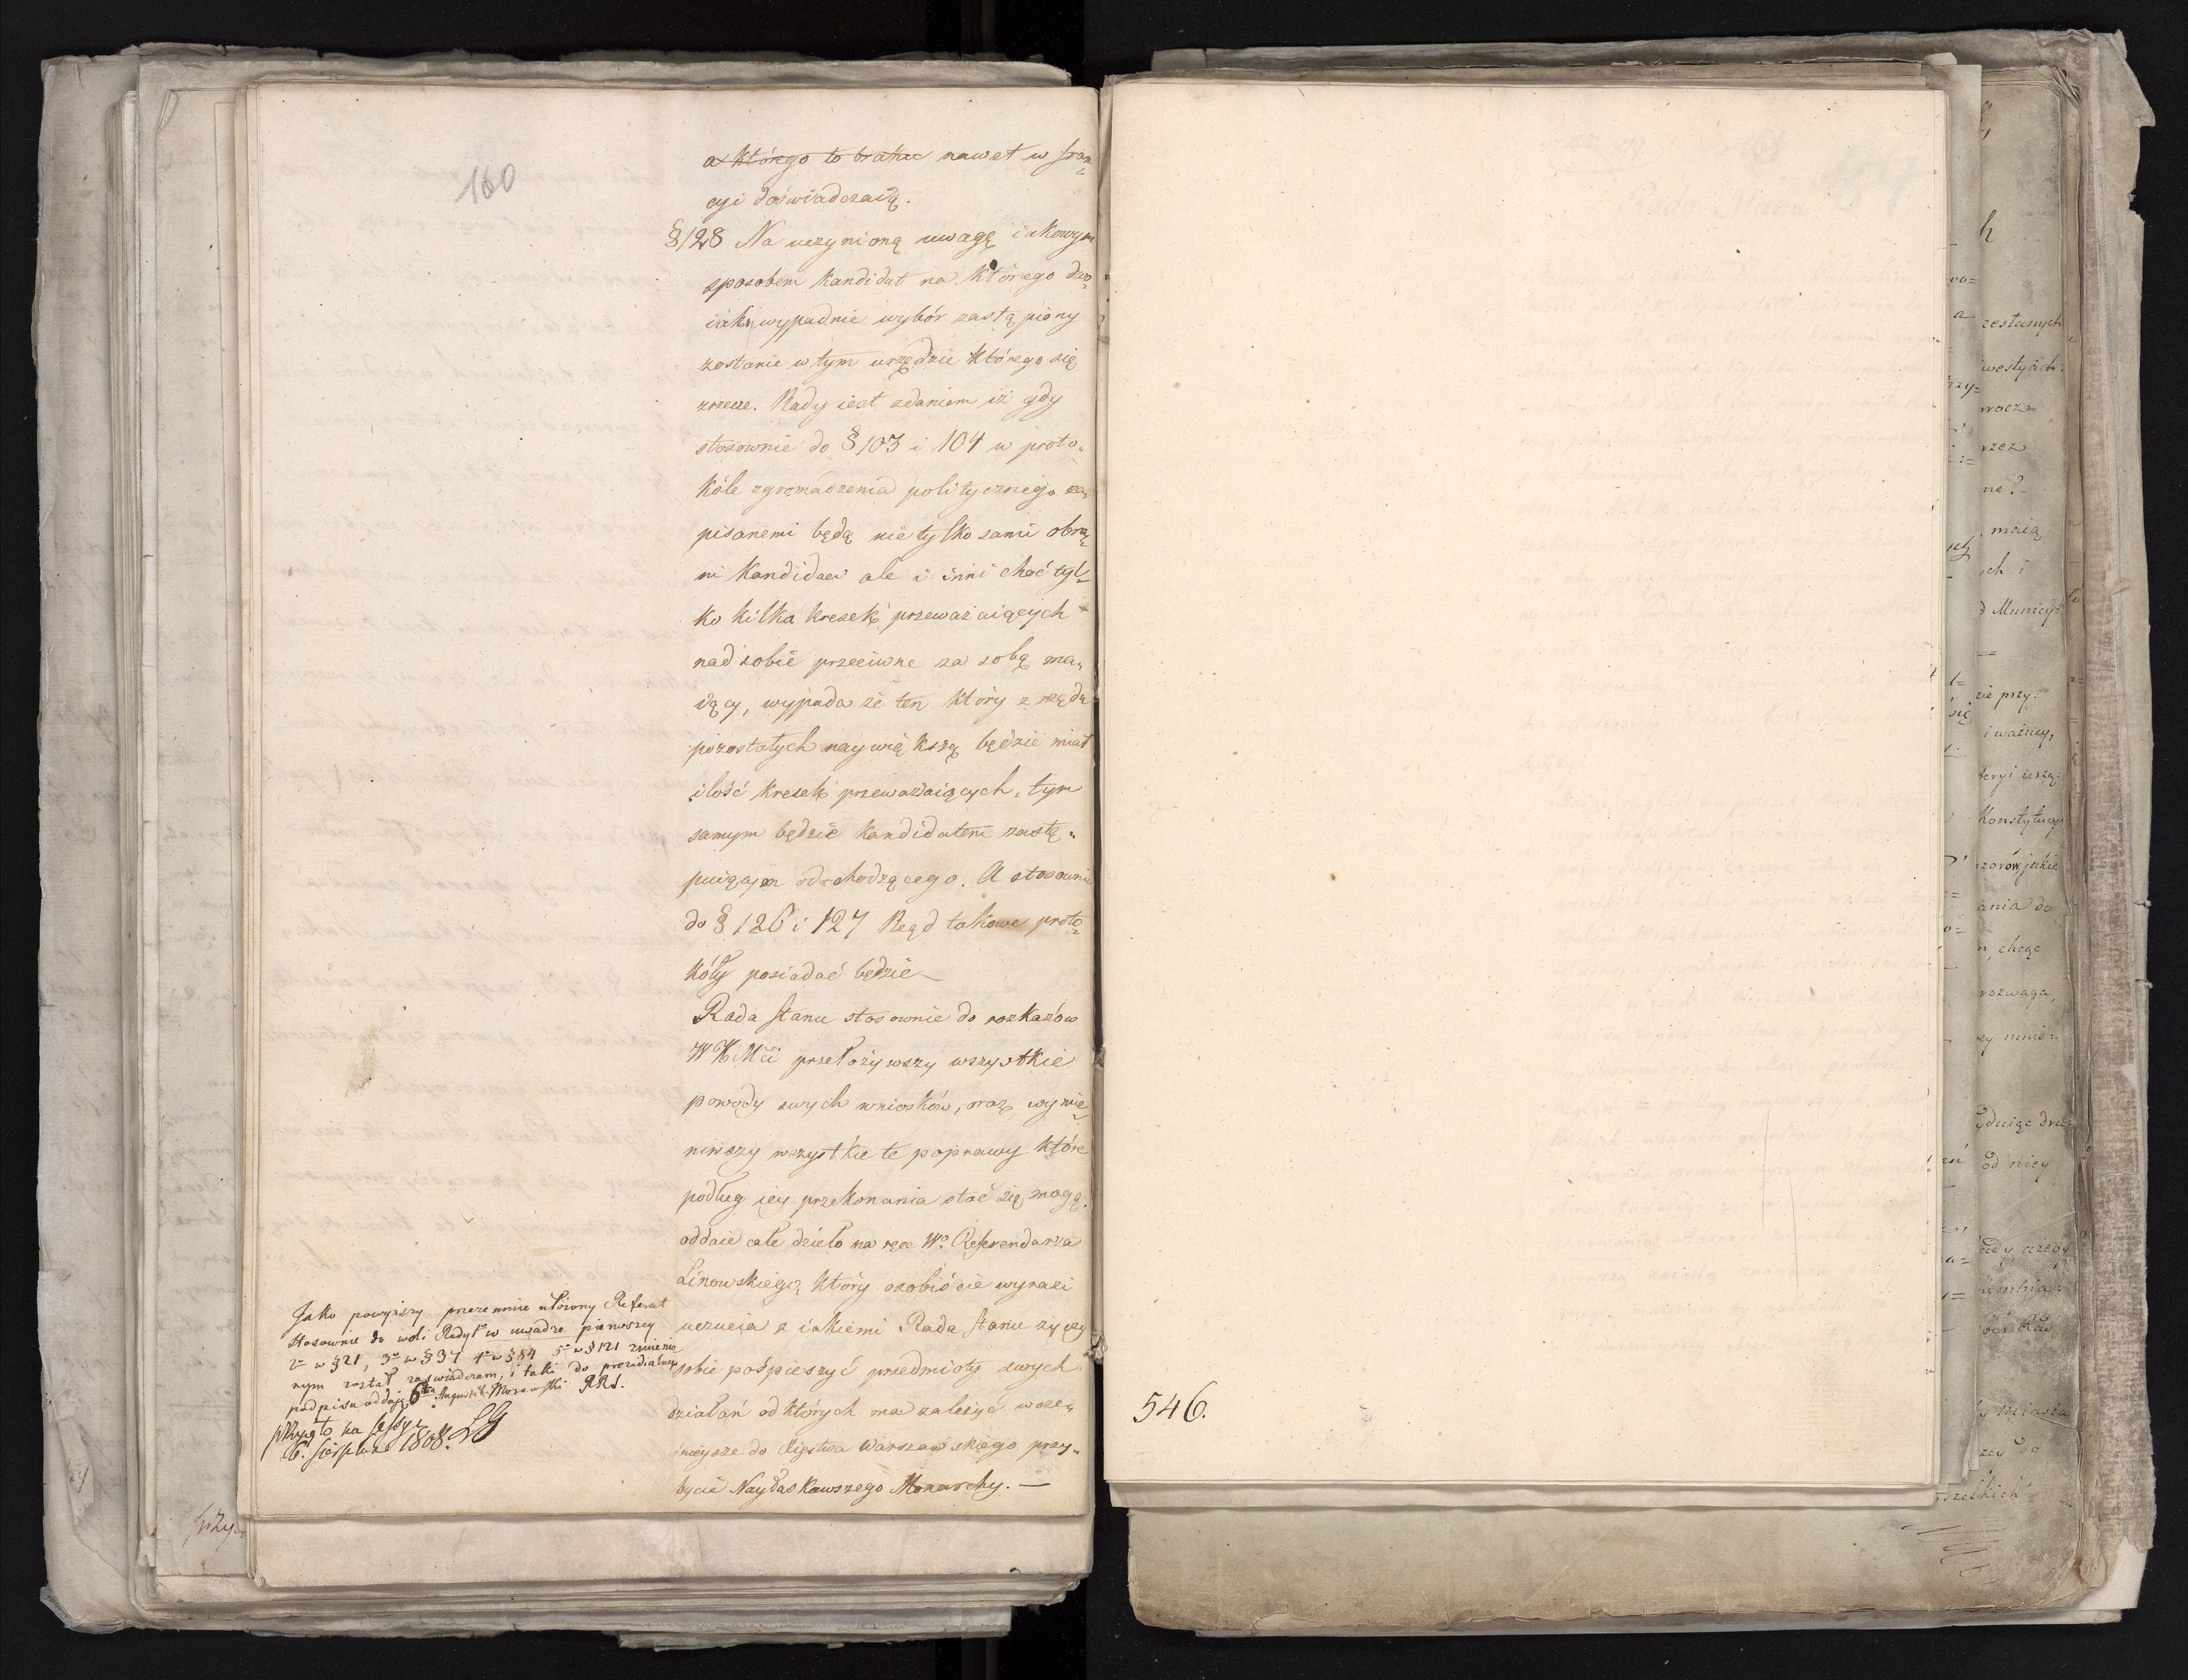 160
a którego to braku nawet w fran=
cyi doświadczaią.
§128 Na uczynioną uwagę iakowym
sposobem kandidat na którego dwo=
iaki wypadnie wybór zastąpiony
zostanie w tym urzędzie którego się
zrzecze. Rady iest zdaniem iż gdy
stosownie do § 103 i 104 w proto=
kóle zgromadzenia politycznego za=
pisanemi będą nie tylko sami obra=
ni Kandidaci ale i inni choć tyl=
ko kilka kresek przeważaiących
nad sobie przeciwne za sobą ma=
iący, wypada że ten który z rzędu
pozostałych naywiększą będzie miał
ilość kresek przeważaiących, tym
samym będzie kandidatem zastę=
puiącym odchodzącego. A stosownie
do § 126 i 127 Rząd takowe proto=
kóły posiadać będzie
Rada stanu stosownie do rozkazów
WKMci przełożywszy wszystkie
powody swych wniosków, oraz wymie=
niwszy wszystkie te poprawy które
podług iey przekonania stać się mogą.
oddaie całe dzieło na ręce Wo Referendarza
Linowskiego, który osobiście wyrazi
uczucia z iakiemi Rada stanu życzy
sobie pośpieszyć przedmioty swych
działań od których ma zależyć wcze=
śnieysze do Xięstwa Warszawskiego przy=
bycie Nayłaskawszego Monarchy. —
Jako powyższy przezemnie ułożony Referat
stosownie do woli Rady 1o w uwadze pierwszey
2o w §21, 3o w §37 4o w §84 5o w §121 zmienio
nym został zaświadczam, i taki do prezidialnego
podpisu oddaię 6ta Augusti Morawski RRS.
przyjęto na sessyi
6. sierpnia 1808. LG
546.